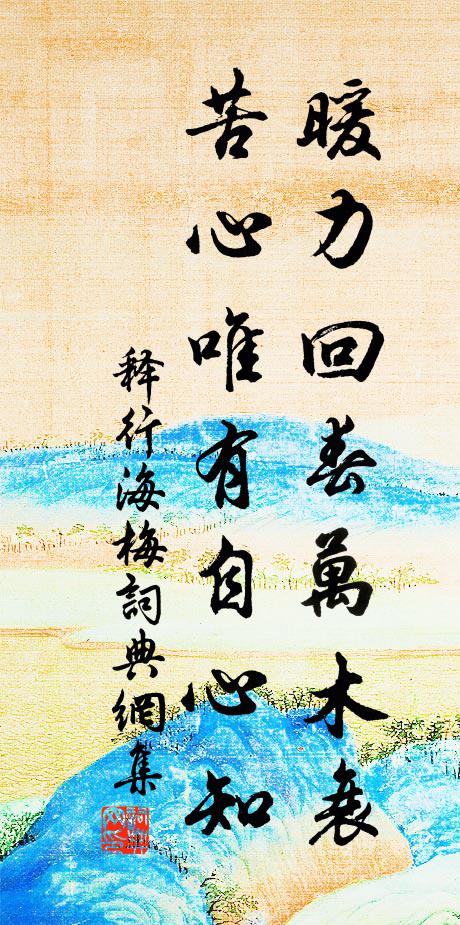 暖力回春萬木衰
苦心唯有自心知
释行海梅詞典網集